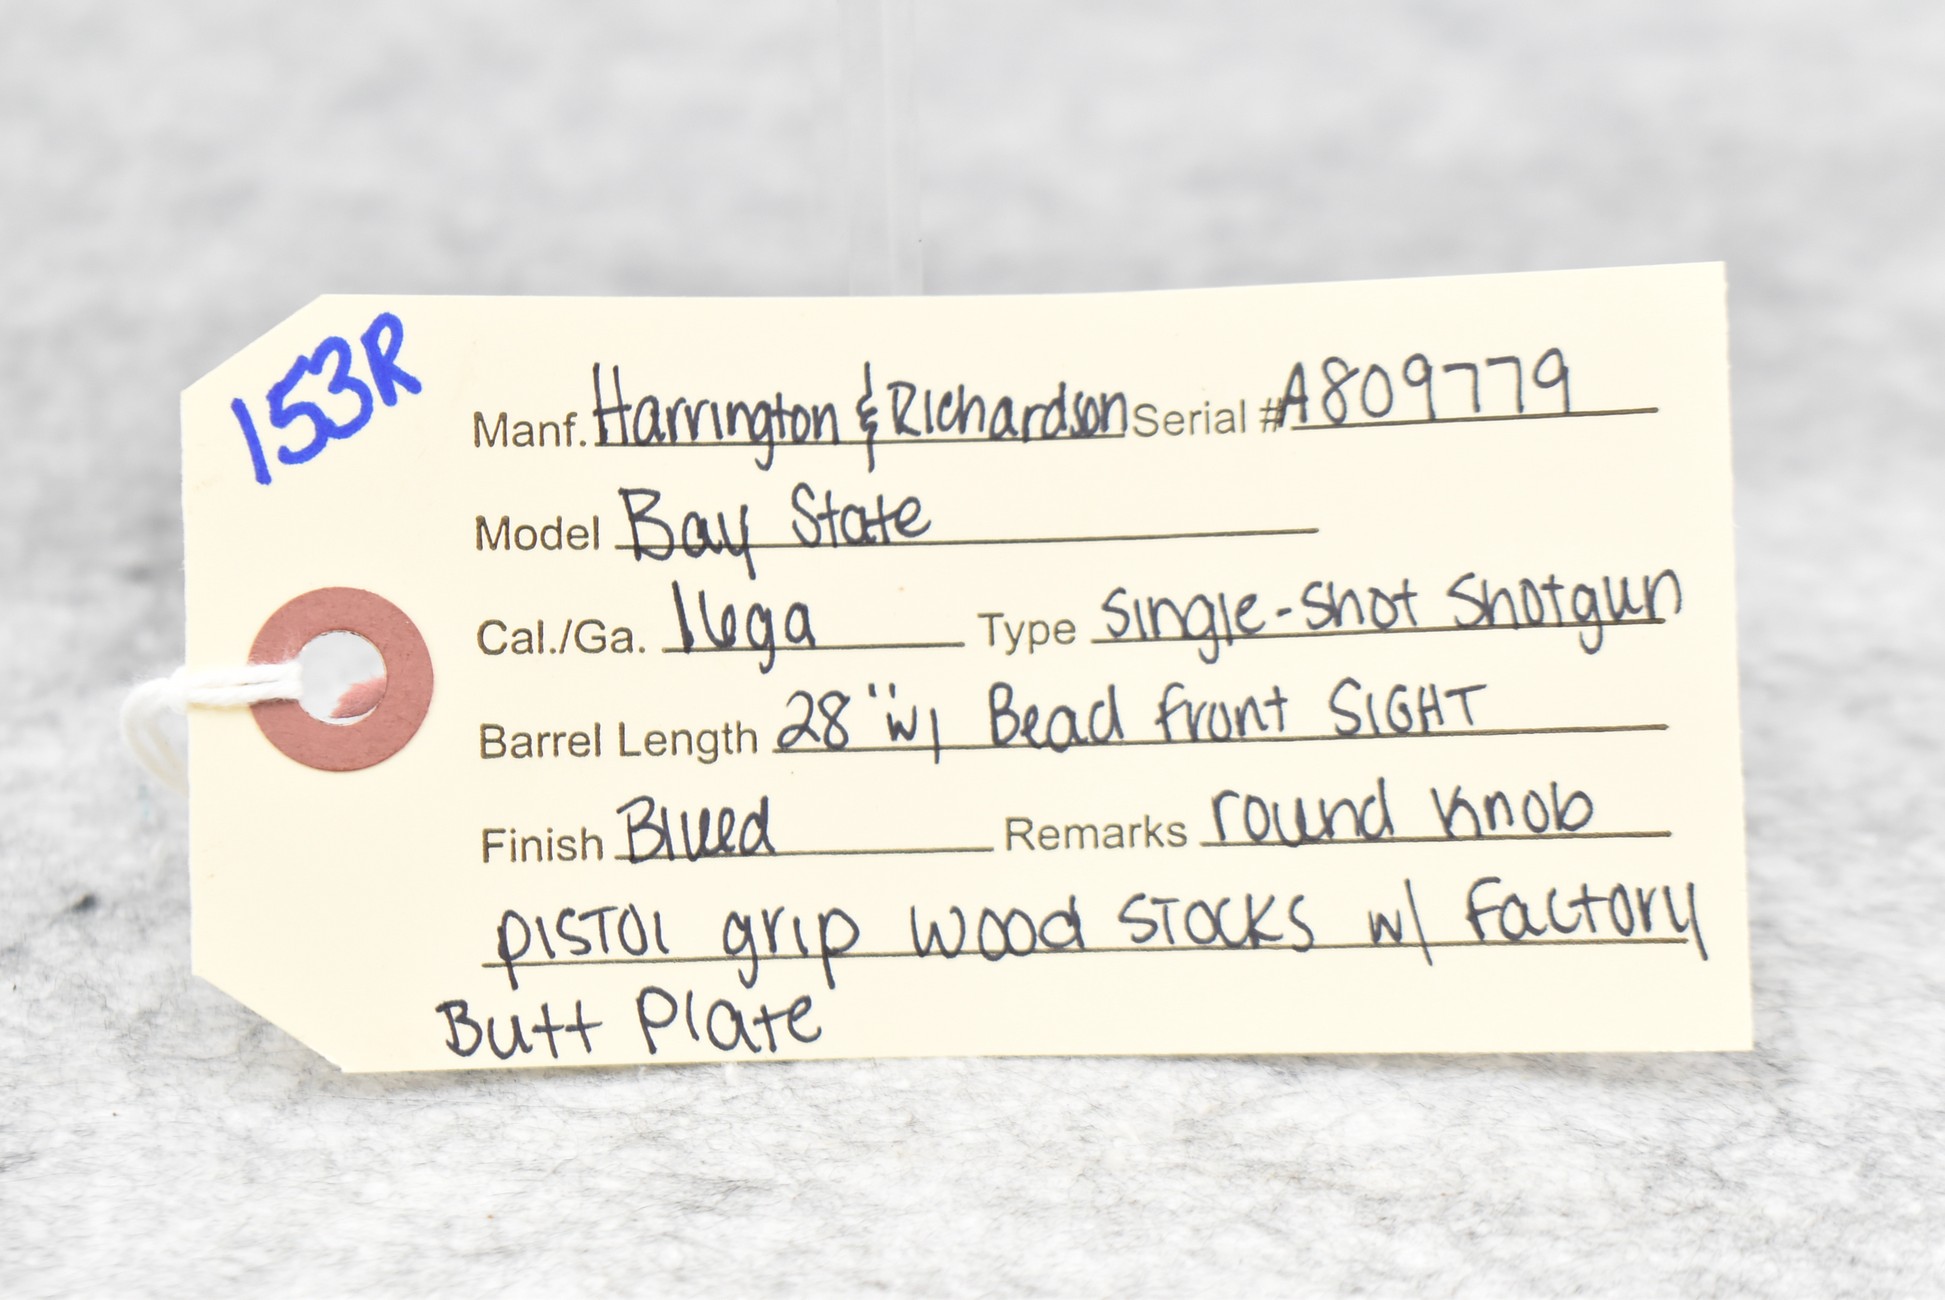 153R
Manf. Harrington & Richardson Serial # A809779
Model Bay State
Cal./Ga. 16ga Type Single-Shot Shotgun
Barrel Length 28" w/ Bead front SIGHT
Finish Blued Remarks round knob
PISTOl grip wood STOCKS w/ Factory
Butt Plate